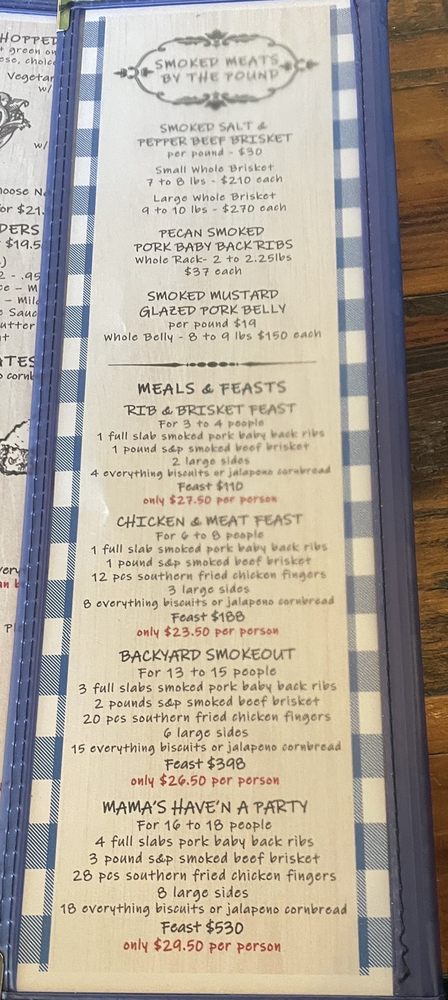 HOPPED
green on
choice
Vegetar
w/
w/
hoose N
or $21.
DERS
$19.5
2 - .95
ce - M
- Mild
Sauc
utter
ATES
cornb
very
an b
Pl
SMOKED MEATS
BY THE POUND
SMOKED SALT &
PEPPER BEEF BRISKET
per pound - $30
Small Whole Brisket
7 to 8 lbs - $210 each
Large Whole Brisket
9 to 10 lbs - $270 each
PECAN SMOKED
PORK BABY BACK RIBS
Whole Rack- 2 to 2.25lbs
$37 each
SMOKED MUSTARD
GLAZED PORK BELLY
per pound $19
Whole Belly - 8 to 9 lbs $150 each
MEALS & FEASTS
RIB & BRISKET FEAST
For 3 to 4 people
1 full slab smoked pork baby back ribs
1 pound s&p smoked beef brisket
2 large sides
4 everything biscuits or jalapeno cornbread
Feast $110
only $27.50 per person
CHICKEN & MEAT FEAST
For 6 to 8 people
1 full slab smoked pork baby back ribs
1 pound s&p smoked beef brisket
12 pcs southern fried chicken fingers
3 large sides
8 everything biscuits or jalapeno cornbread
Feast $188
only $23.50 per person
BACKYARD SMOKEOUT
For 13 to 15 people
3 full slabs smoked pork baby back ribs
2 pounds s&p smoked beef brisket
20 pcs southern fried chicken fingers
6 large sides
15 everything biscuits or jalapeno cornbread
Feast $398
only $26.50 per person
MAMA'S HAVE'N A PARTY
For 16 to 18 people
4 full slabs pork baby back ribs
3 pound s&p smoked beef brisket
28 pcs southern fried chicken fingers
8 large sides
18 everything biscuits or jalapeno cornbread
Feast $530
only $29.50 per person